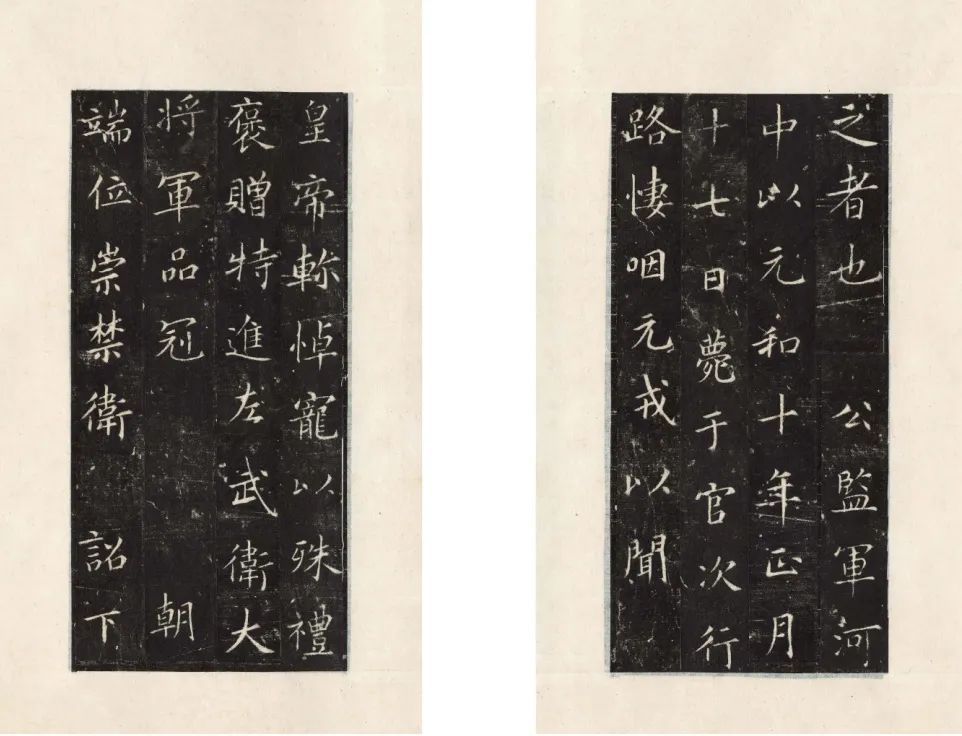 之者也公監軍河
中以元和十年正月
十七日薨于官次行
路悽咽元戎以聞
皇帝軫悼寵以殊禮
褒贈特進左武衛大
將軍品冠朝
端位崇禁衛詔下